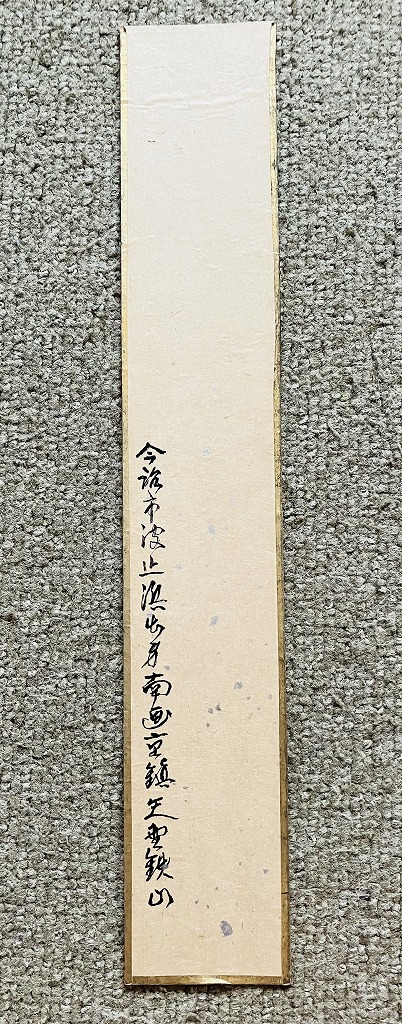 今治市波止浜出身南画 矢野鉄山